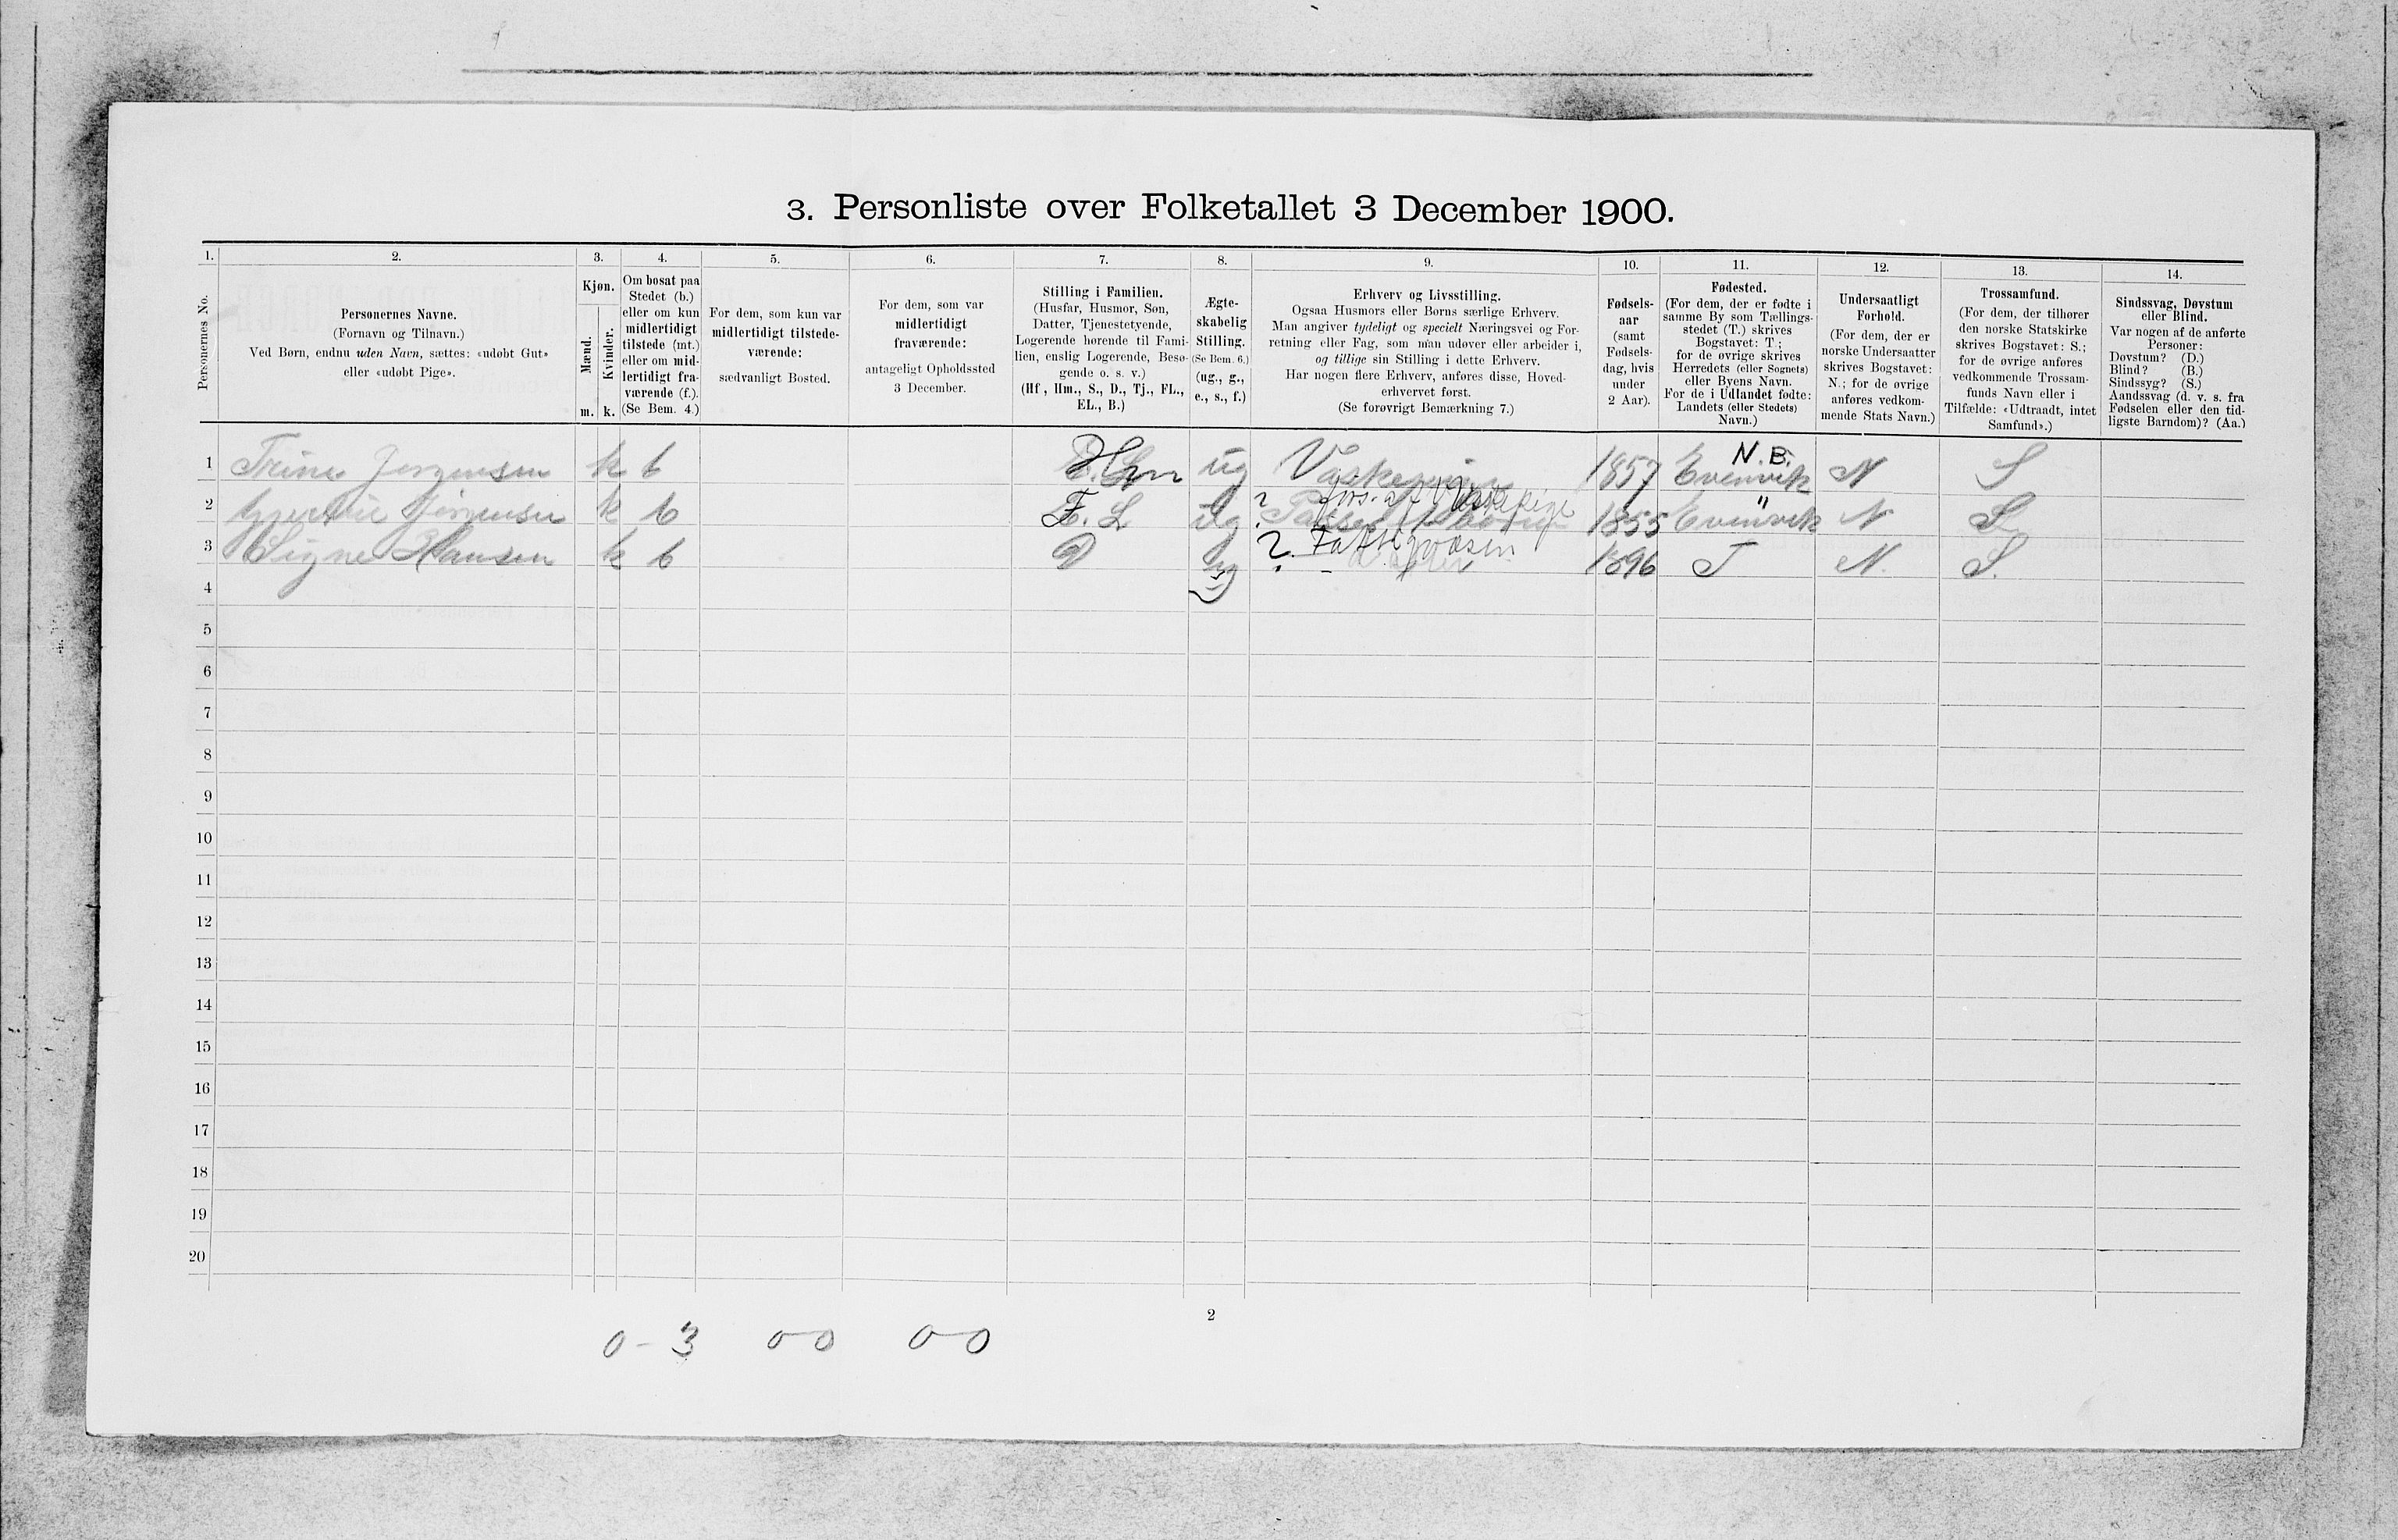 3. Personliste over Folketallet 3 December 1900.
1. 2. 3. 4. 5. 6. 7. 8. 9. 10. 11. 12. 13. 14.
Personernes No.
Personernes Navne.
(Fornavn og Tilnavn.)
Ved Børn, endnu uden Navn, sættes: «udøbt Gut»
eller «udøbt Pige».
Kjøn.
Mænd.
Kvinder.
m. k.
Om bosat paa
Stedet (b.)
eller om kun
midlertidigt
tilstede (mt.)
eller om mid-
lertidigt fra-
værende (f.).
(Se Bem. 4.)
For dem, som kun var
midlertidigt tilstede-
værende:
sædvanligt Bosted.
For dem, som var
midlertidigt
fraværende:
antageligt Opholdssted
3 December.
Stilling i Familien.
(Husfar, Husmor, Søn,
Datter, Tjenestetyende,
Logerende hørende til Fami-
lien, enslig Logerende, Besø-
gende o. s. v.)
(Hf, Hm., S., D., Tj., FL.,
EL., B.)
Ægte-
skabelig
Stilling.
(Se Bem. 6.)
(ug., g.,
e., s., f.)
Erhverv og Livsstilling.
Ogsaa Husmors eller Børns særlige Erhverv.
Man angiver tydeligt og specielt Næringsvei og For-
retning eller Fag, som man udøver eller arbeider i,
og tillige sin Stilling i dette Erhverv.
Har nogen flere Erhverv, anføres disse, Hoved-
erhvervet først.
(Se forøvrigt Bemærkning 7.)
Fødsels-
aar
(samt
Fødsels-
dag, hvis
under
2 Aar).
Fødested.
(For dem, der er fødte i
samme By som Tællings-
stedet (T.) skrives
Bogstavet: T.;
for de øvrige skrives
Herredets (eller Sognets)
eller Byens Navn.
For de i Udlandet fødte:
Landets (eller Stedets)
Navn.)
Undersaatligt
Forhold.
(For dem, der er
norske Undersaatter
skrives Bogstavet:
N.; for de øvrige
anføres vedkom-
mende Stats Navn.)
Trossamfund.
(For dem, der tilhører
den norske Statskirke
skrives Bogstavet: S.;
for de øvrige anføres
vedkommende Trossam-
funds Navn eller i
Tilfælde: «Udtraadt, intet
Samfund».)
Sindssvag, Døvstum
eller Blind.
Var nogen af de anførte
Personer:
Døvstum? (D.)
Blind? (B.)
Sindssyg? (S.)
Aandssvag (d. v. s. fra
Fødselen eller den tid-
ligste Barndom)? (Aa.)
N.B.
1 Trine Jørgensen k b Hm ug 1857 Evenvik N S
2 Jørgensen k b F. L ug ? fors. af Vaskepige 1855 Evenvik N S
3 Signe Hansen k b D ug ? Fattigvæsen 1896 T N. S.
4
5
6
7
8
9
10
11
12
13
14
15
16
17
18
19
20
2
0-3 00 0-0